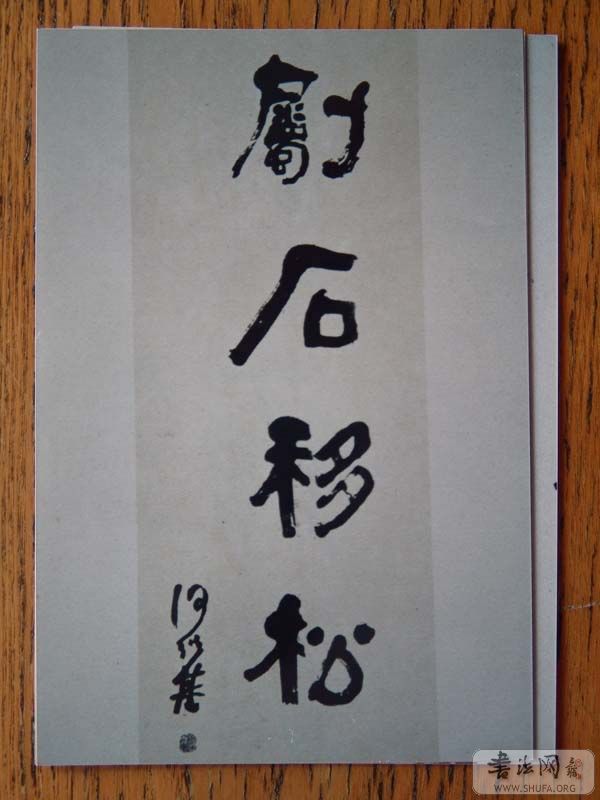 劚石移松
何紹基
書法网
WWW.SHUFA.ORG